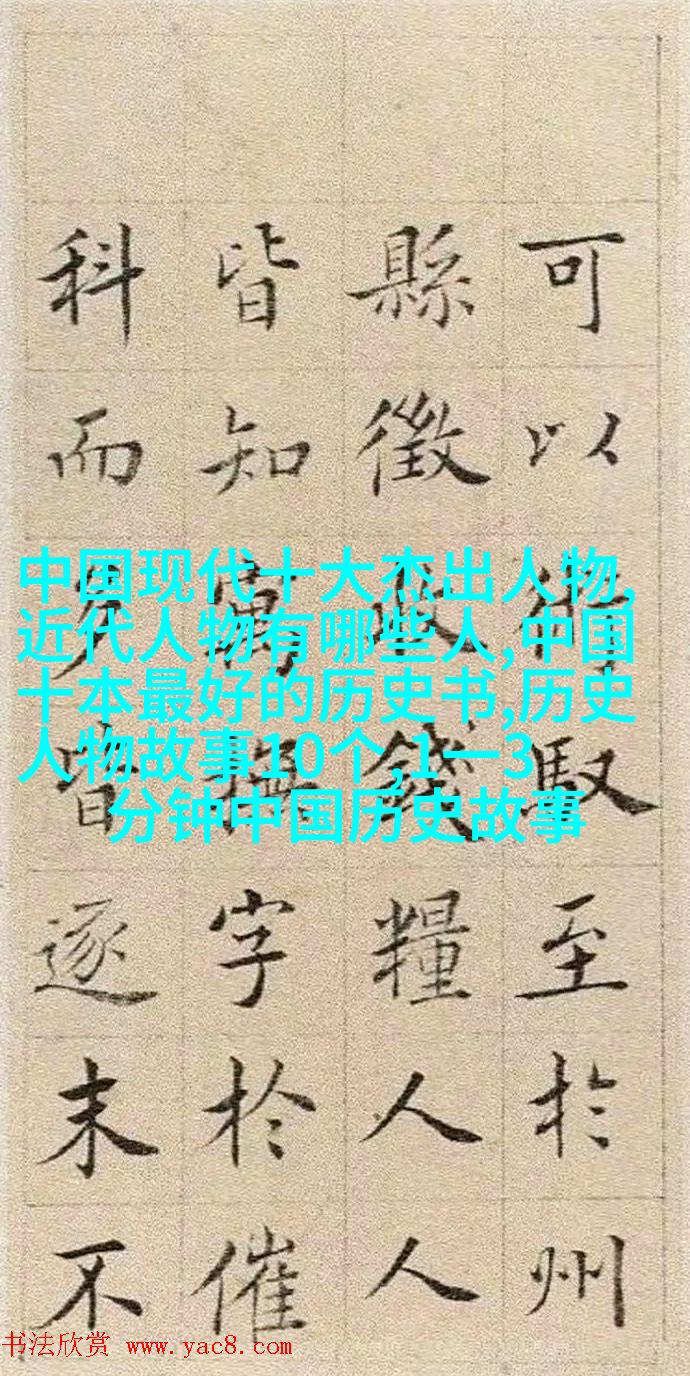 可以馭至於州
縣徵收錢糧人人
皆知寓撫字於催
科而皆逐末不
中国现代十大杰出人物,
近代人物有哪些人,中国
十本最好的历史书,历史
人物故事10个,1一3
分钟中国历史故事
书法欣赏 www.yac8.com